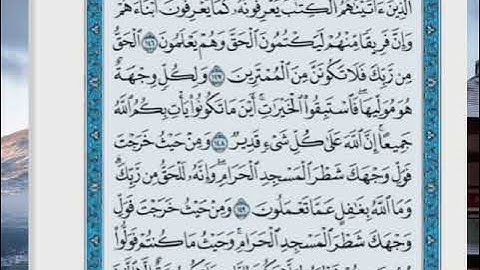 ٱلَّذِينَ ءَاتَيْنَٰهُمُ ٱلْكِتَٰبَ يَعْرِفُونَهُۥ كَمَا يَعْرِفُونَ أَبْنَآءَهُمْ
وَإِنَّ فَرِيقًا مِّنْهُمْ لَيَكْتُمُونَ ٱلْحَقَّ وَهُمْ يَعْلَمُونَ ١٤٦ ٱلْحَقُّ
مِن رَّبِّكَ فَلَا تَكُونَنَّ مِنَ ٱلْمُمْتَرِينَ ١٤٧ وَلِكُلٍّ وِجْهَةٌ
هُوَ مُوَلِّيهَا فَٱسْتَبِقُوا۟ ٱلْخَيْرَٰتِ أَيْنَ مَا تَكُونُوا۟ يَأْتِ بِكُمُ ٱللَّهُ
جَمِيعًا إِنَّ ٱللَّهَ عَلَىٰ كُلِّ شَىْءٍ قَدِيرٌ ١٤٨ وَمِنْ حَيْثُ خَرَجْتَ
فَوَلِّ وَجْهَكَ شَطْرَ ٱلْمَسْجِدِ ٱلْحَرَامِ وَإِنَّهُۥ لَلْحَقُّ مِن رَّبِّكَ
وَمَا ٱللَّهُ بِغَٰفِلٍ عَمَّا تَعْمَلُونَ ١٤٩ وَمِنْ حَيْثُ خَرَجْتَ فَوَلِّ
وَجْهَكَ شَطْرَ ٱلْمَسْجِدِ ٱلْحَرَامِ وَحَيْثُ مَا كُنتُمْ فَوَلُّوا۟